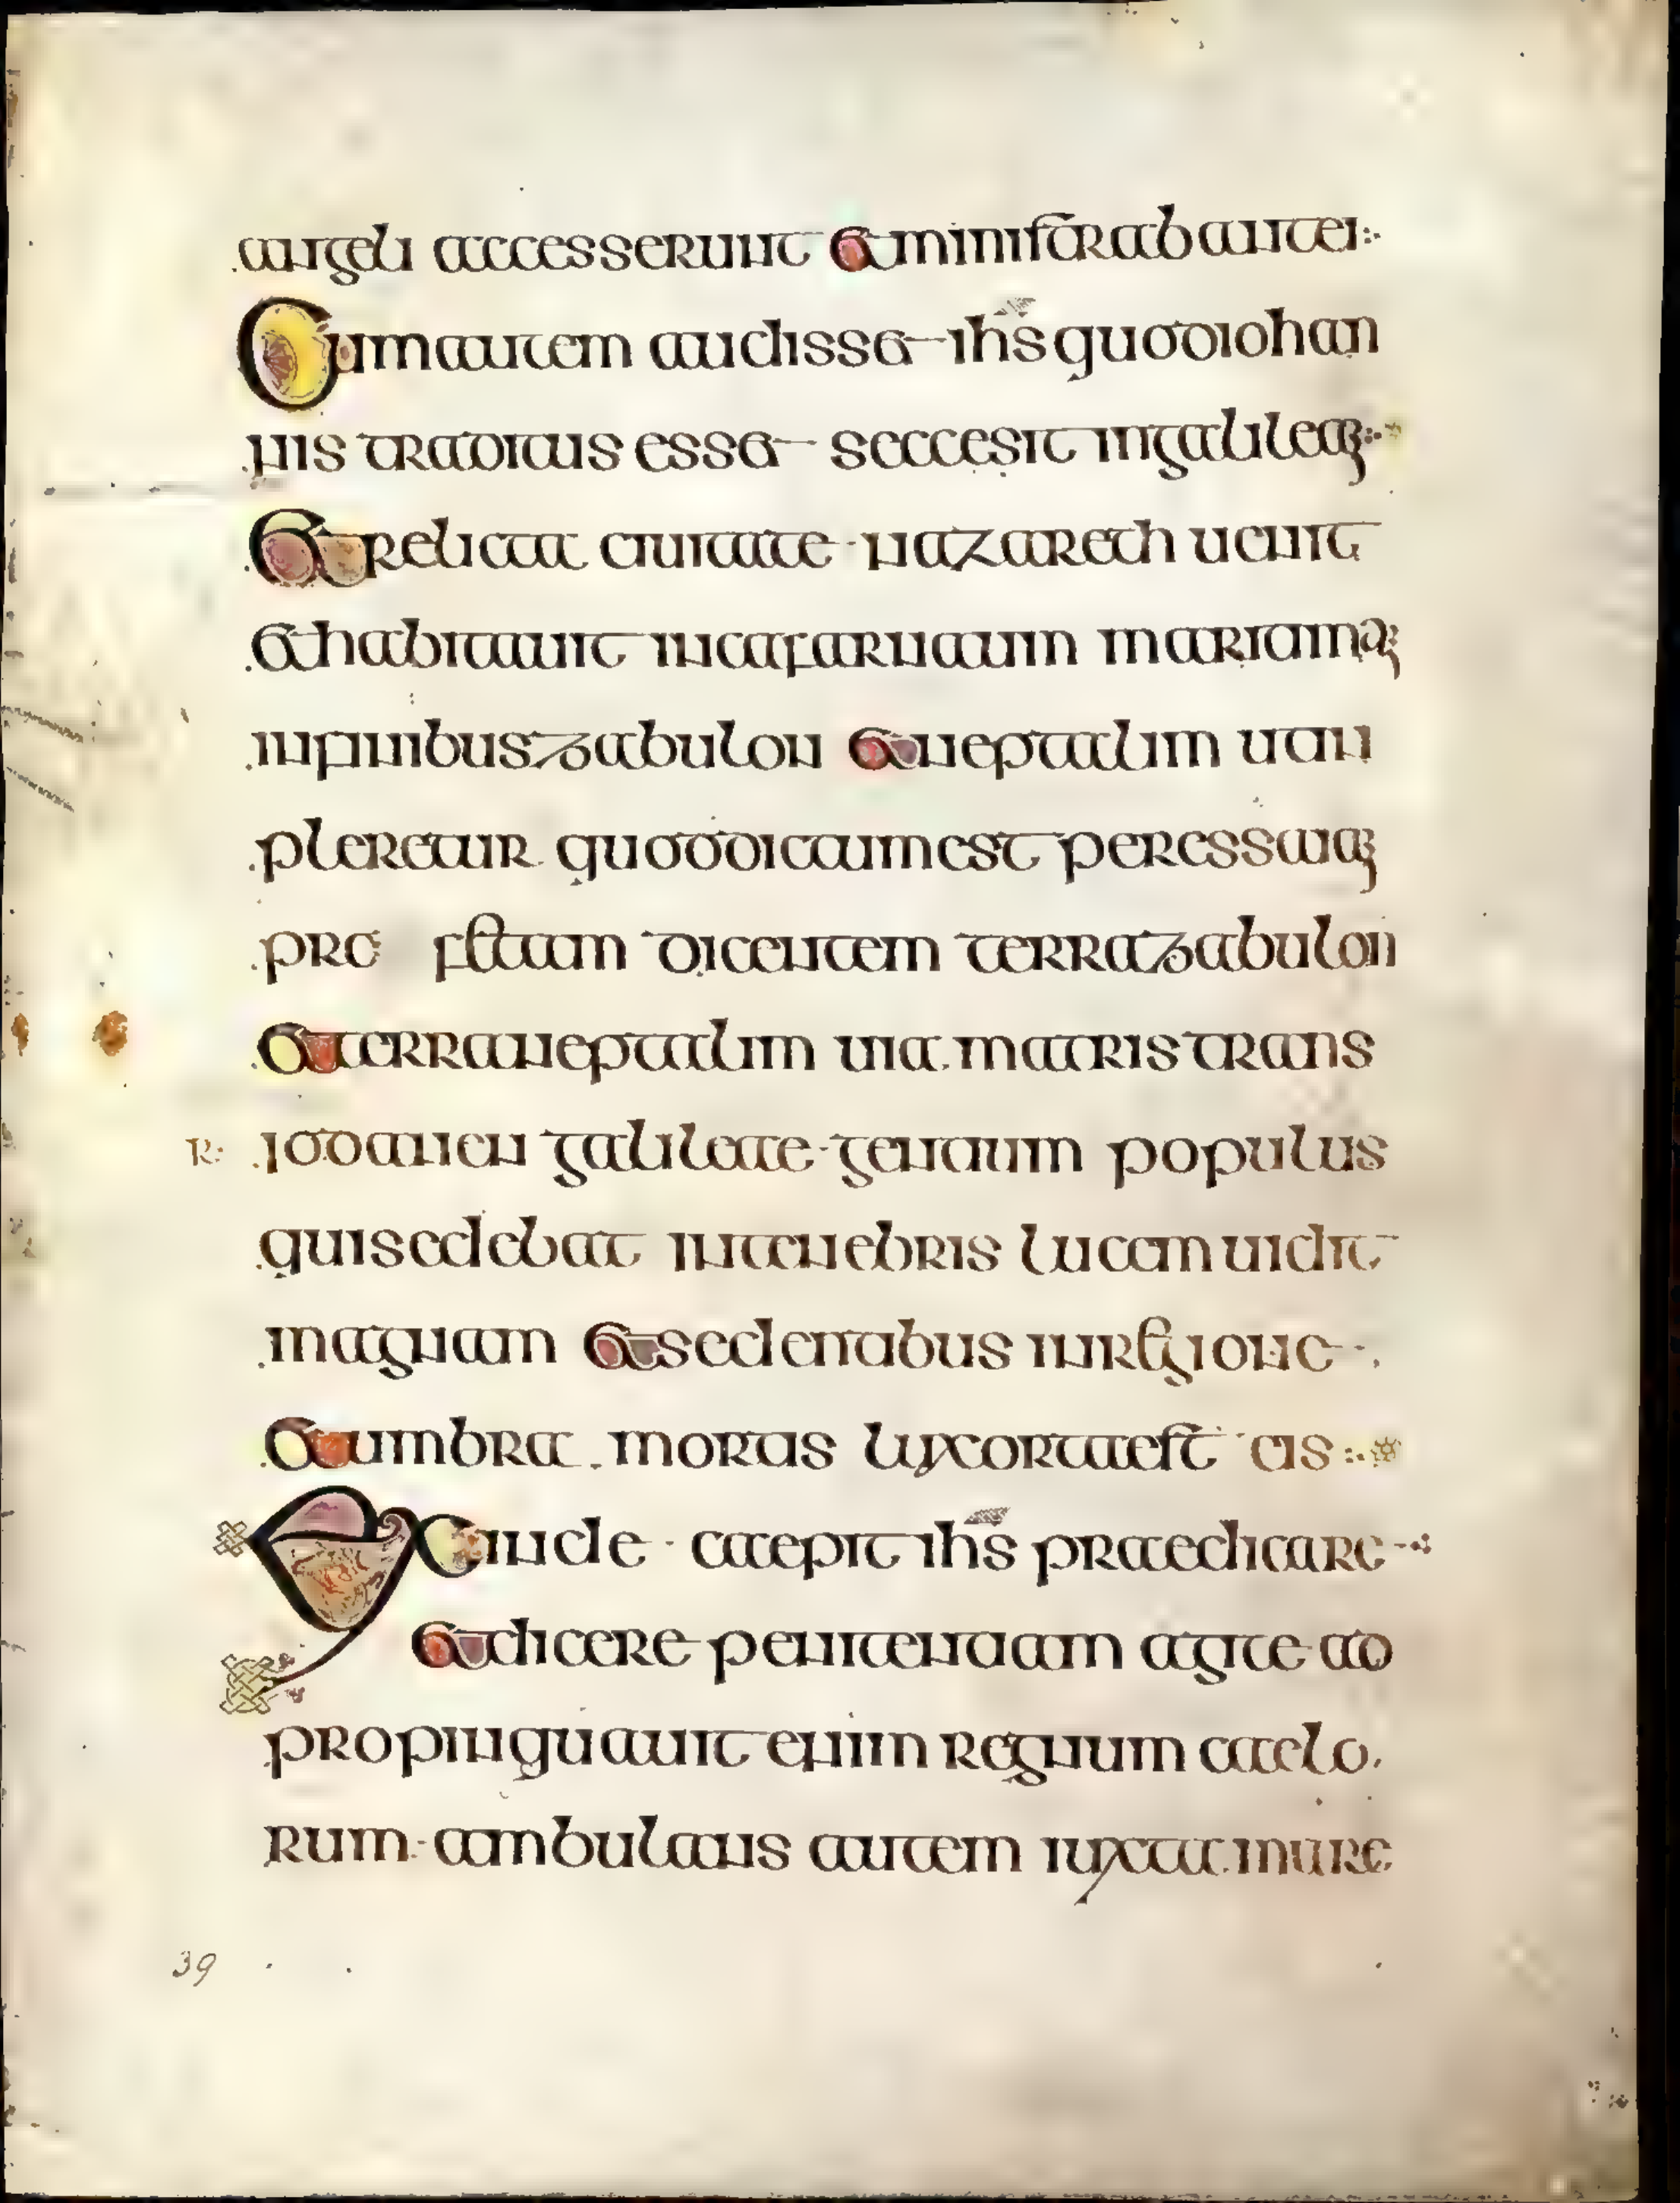 angeli accesserunt et ministrabant ei
Cum autem audisset ihs quod iohan
nis traditus esset seccesit in galileam
Et relicta ciuitate nazareth uenit
et habitauit in cafarnaum maritimam
in finibus zabulon et neptalim ut an
pleretur quod dictum est per essaiam
profetam dicentem terra zabulon
et terra neptalim uia matris trans
R: iodanen galileae gentium populus
qui sedebat in tenebris lucem uidit
magnam et sedentibus in regione
et umbra mortis lux orta est eis
Exinde caepit ihs praedicare
et dicere penitentiam agite ad
propinquauit enim regnum caelo
rum ambulans autem iuxta mare
39